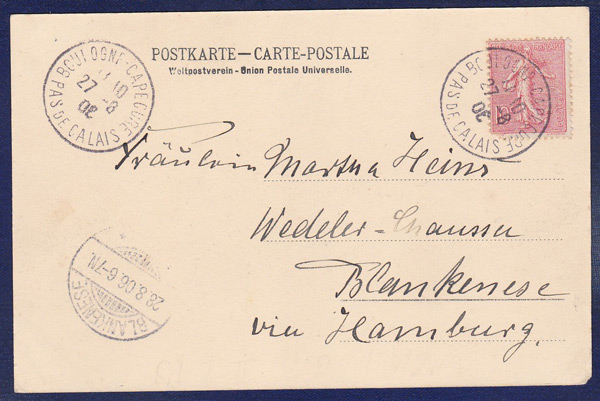 POSTKARTE – CARTE-POSTALE
Weltpostverein - Union Postale Universelle.
BOULOGNE-CAPECURE
10
27 -8
06
PAS DE CALAIS
BOULOGNE-CAPECURE
10
27 -8
06
PAS DE CALAIS
Fräulein Martha Heins
Wedeler-Chaussee
Blankenese
via Hamburg.
BLANKENESE
28.8.06. 6-7N.